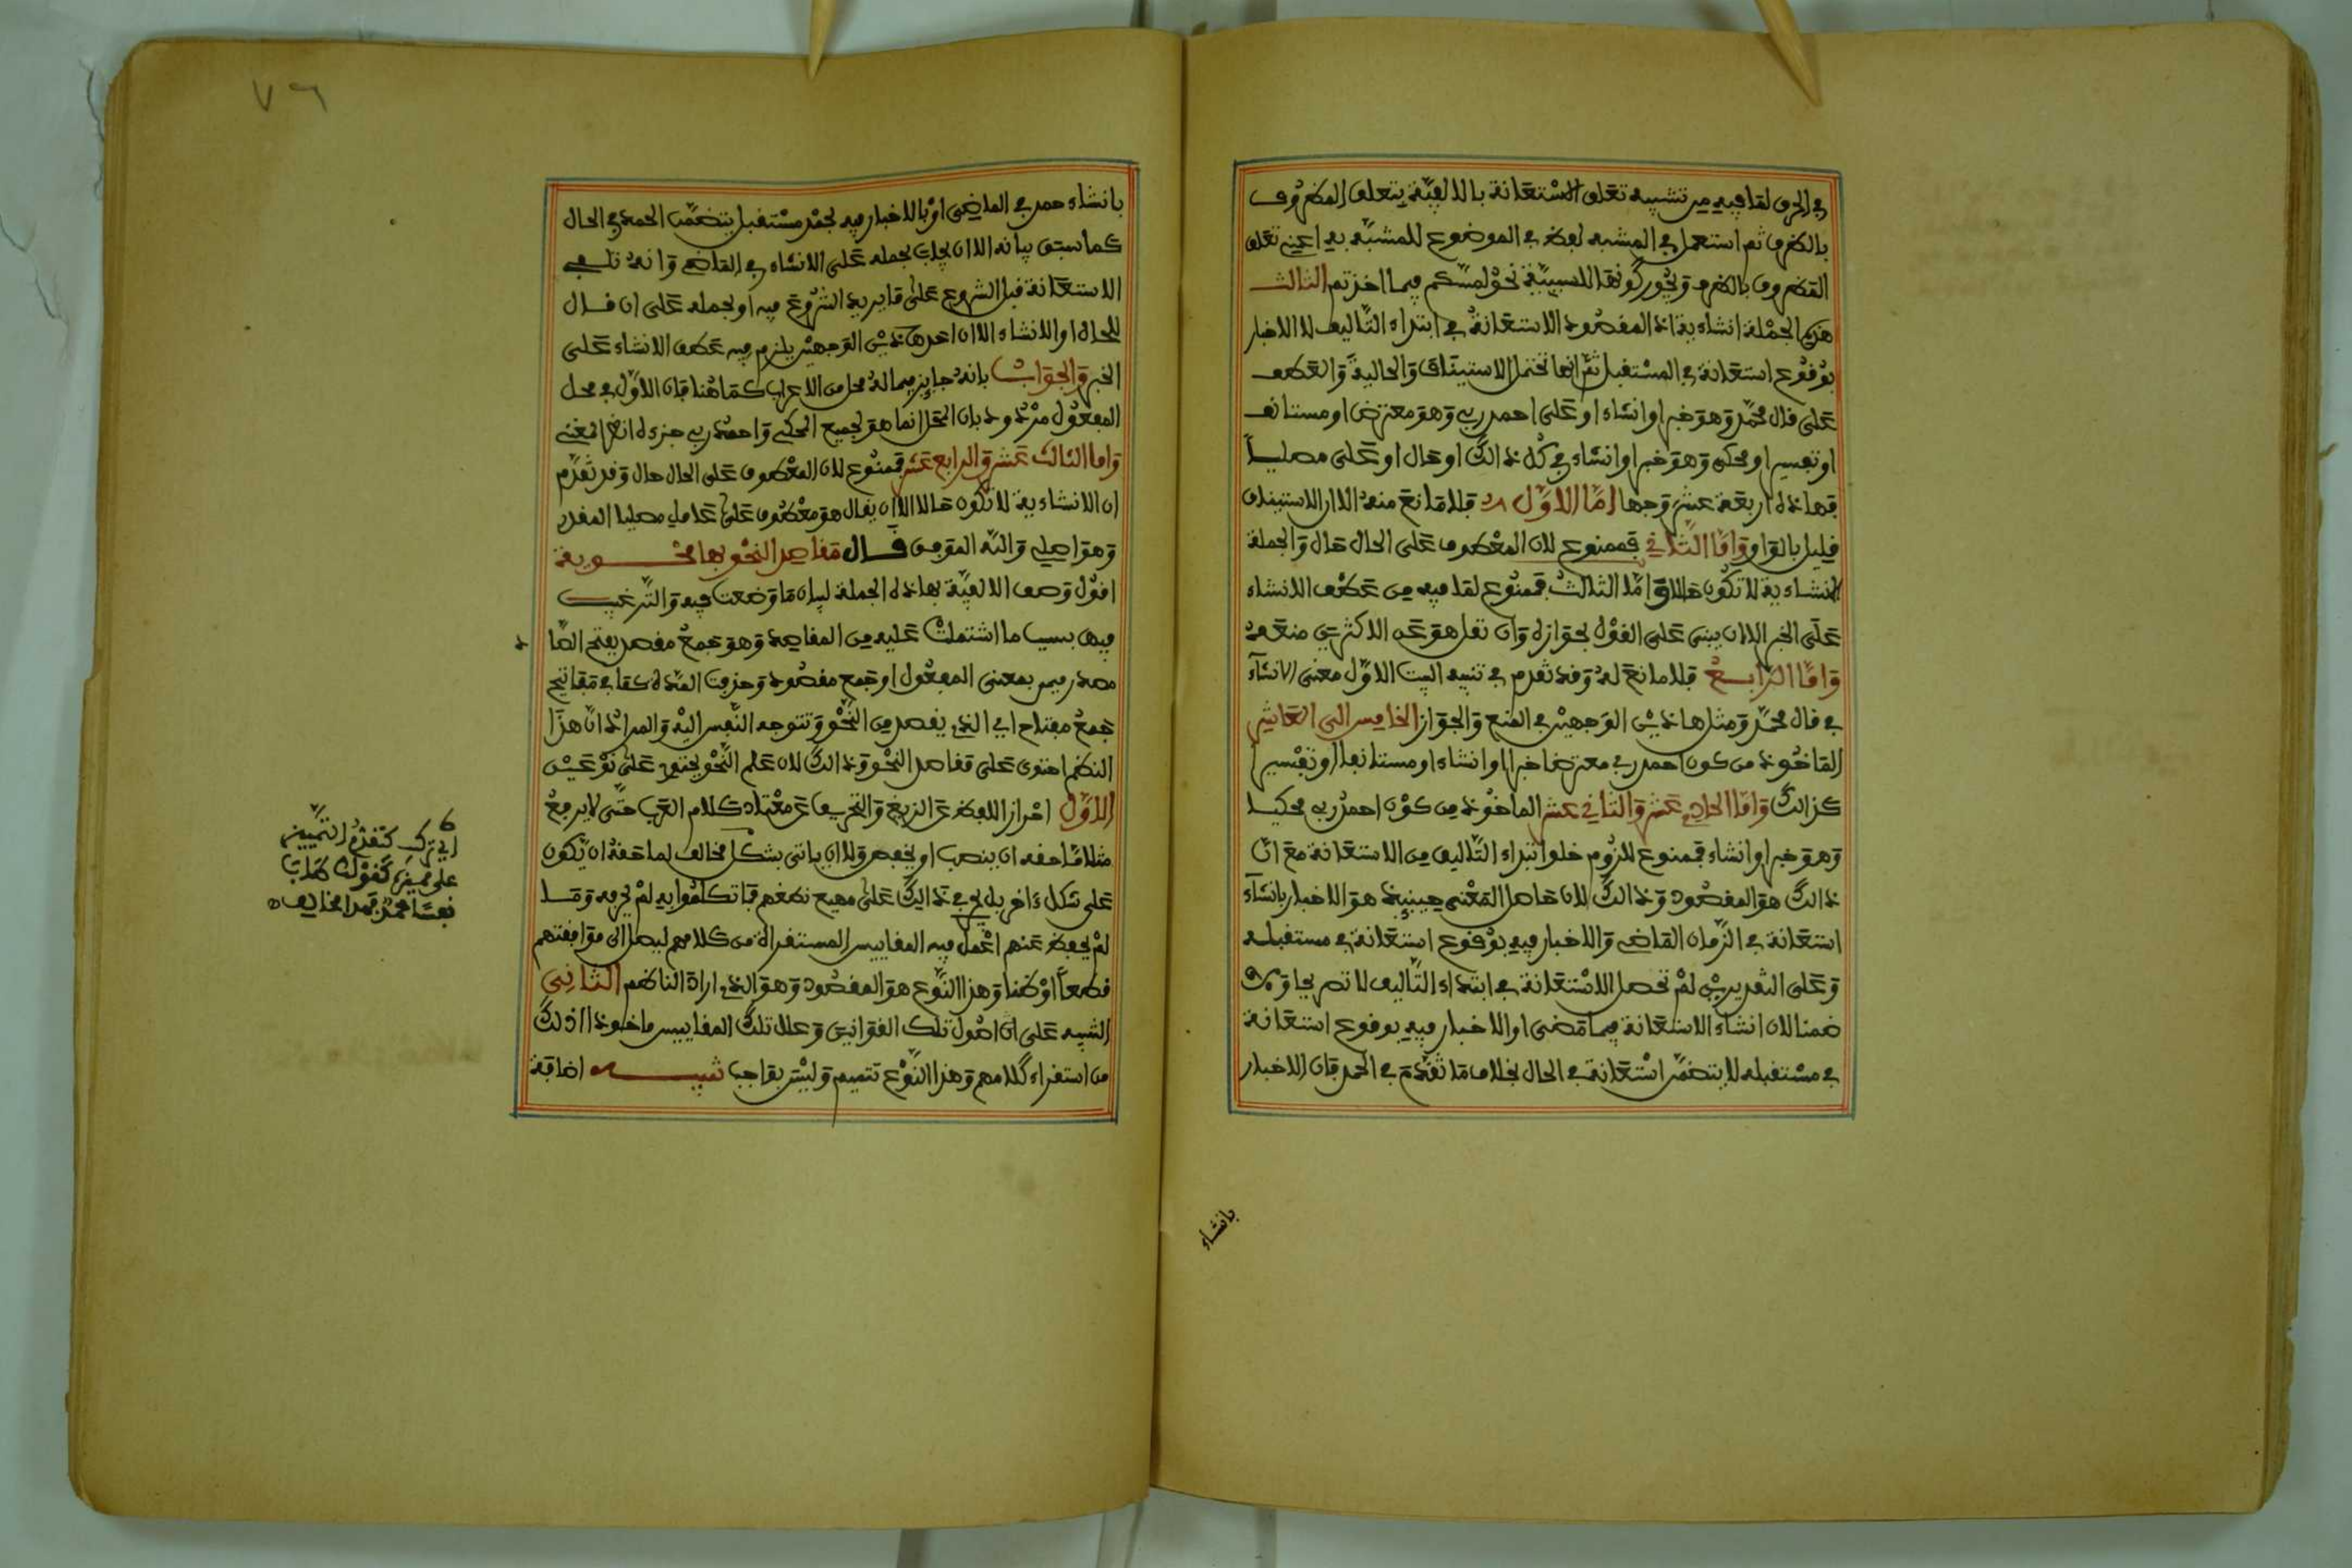 في الحرف لما فيه من تشبيه تعلق الاستعانة بالالفية بتعلق المظروف
بالظرف ثم استعمل في المشبه لفظ في الموضوع للمشبه به اعني تعلق
المظروف بالظرف ويجوز كونها للسببية نحو لمسكم فيما اخذتم الثالث
هذه الجملة انشاءية اذ المفصود الاستعانة في ابتداء التأليف لا الاخبار
بوفوع استعانة في المستفبل ثم انها تحتمل الاستيناف والحالية والعطف
على فال محمد وهو خبر او انشاء او على احمد ربي وهو معترض او مستانف
او تفسير او محكي وهو خبر او انشاء في كل ذالك او حال او على مصليا
فهاذه اربعة عشر وجها اما الاول فلا مانع منه الا ان الاستيناف
فليل بالواو واما الثاني فممنوع لان المعطوف على الحال حال والجملة
الانشاءية لا تكون حالا واما الثالث فممنوع لما فيه من عطف الانشاء
على الخبر الا ان يبنى على الفول بجوازه وان نفل هو عن الاكثرين منعه
واما الرابع فلا مانع له وفد تفدم في تنبيه البيت الاول معنى الانشاء
في فال محمد ومثل هاذين الوجهين في المنع والجواز الخامس الى العاشر
الماخوذ من كون احمد ربي معترضا خبرا او انشاء او مستانفا او تفسيرا
كذالك واما الحادي عشر والثاني عشر الماخوذ من كون احمد ربي محكيا
وهو خبر او انشاء فممنوع للزوم خلو ابتداء التأليف من الاستعانة مع ان
ذالك هو المفصود وذالك لان حاصل المعنى حينيذ هو الاخبار بانشاء
استعانة في الزمان الماضي والاخبار فيه بوفوع استعانة في مستفبله
وعلى التفديرين لم تحصل الاستعانة في ابتداء التأليف لا تصريحا ولا
ضمنا لان انشاء الاستعانة فيما مضى او الاخبار فيه بوفوع استعانة
في مستفبله لا يتضمن استعانة في الحال بخلاف ما تفدم في الحمد فان الاخبار
بانشاء
٧٦
بانشاء حمد في الماضي او بالاخبار فيه بحمد مستفبل يتضمن الحمد في الحال
كما سبق بيانه الا ان يجاب بحمله على الانشاء في الماضي وانه
الاستعانة فبل الشروع على ما يريد الشروع فيه او بحمله على ان فال
للحال او الانشاء الا ان احد هاذين الوجهين يلزم فيه عطف الانشاء على
الخبر والجواب بانه جايز فيما له محل من الاعراب كما هنا فان الاول في محل
المفعول مردود بان المحل انما هو لجميع المحكي واحمد ربي جزءه انظر المغني
واما الثالث عشر والرابع عشر فممنوع لان المعطوف على الحال حال وفد تفدم
ان الانشاءية لا تكون حالا الا ان يفال هو معطوف على عامل مصليا المفدر
وهو اصلي والله الموفق فال مفاصد النحو بها محوية
افول وصف الالفية بهاذه الجملة لبيان ما وضعت فيه والترغيب
فيها بسبب ما اشتملت عليه من المفاصد وهو جمع مفصد بفتح الصاد
مصدر ميمي بمعنى المفعول او جمع مفصود وحذفت المدة كما في مفاتح
جمع مفتاح اي الذي يفصد من النحو وتتوجه النفس اليه والمراد ان هذا
النظم احتوى على مفاصد النحو وذالك لان علم النحو يحتوي على نوعين
الاول احراز اللفظ عن الزيغ والتحريف عن معتاد كلام العرب حتى لا يرفع
مثلا ما حفه ان ينصب او يخفض ولا ان ياتي بشكل مخالف لما حفه ان يكون
على شكل ءاخر بل يجري ذالك على مهيع نطفهم فما تكلموا به لم يحرفه وما
لم يحفظ عنهم اعمل فيه المفاييس المستفراة من كلامهم ليصل الى موافقتهم
فطعا او ظنا وهذا النوع هو المفصود وهو الذي اراد الناظم الثاني
التنبيه على ان اصول تلك الفوانين وعلل تلك المفاييس ماخوذ اذلك
من استفراء كلامهم وهذا النوع تتميم وليس بواجب تنبيه اضافة
اي ترك كتفدم التمييز
على مميزه كفولك طاب
نفسا محمد فمدا مخالف